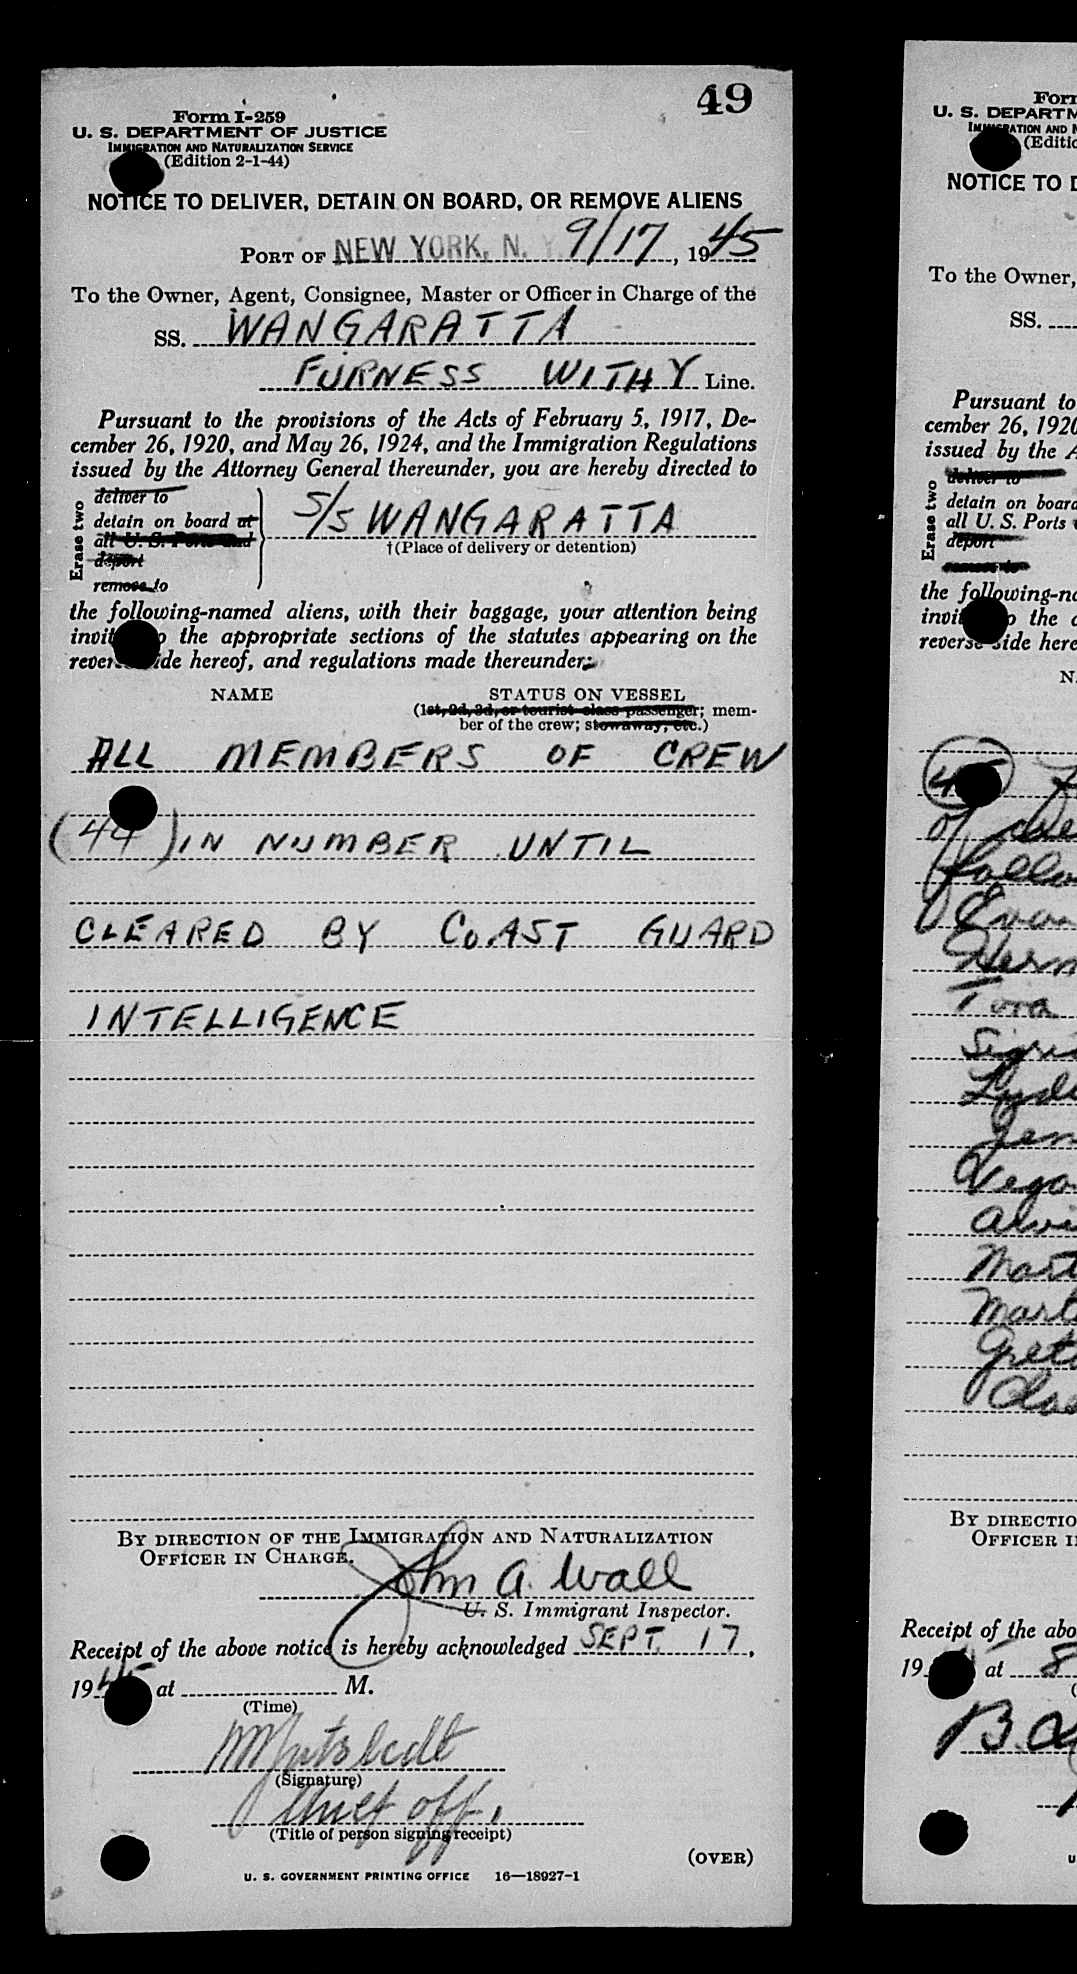 49
Form I-259
U. S. DEPARTMENT OF JUSTICE
IMMIGRATION AND NATURALIZATION SERVICE
(Edition 2-1-44)
NOTICE TO DELIVER, DETAIN ON BOARD, OR REMOVE ALIENS
PORT OF NEW YORK, N. Y. 9/17, 1945
To the Owner, Agent, Consignee, Master or Officer in Charge of the
SS. WANGARATTA
FURNESS WITHY Line.
Pursuant to the provisions of the Acts of February 5, 1917, De-
cember 26, 1920, and May 26, 1924, and the Immigration Regulations
issued by the Attorney General thereunder, you are hereby directed to
Erase two
deliver to
detain on board at
all U. S. Ports and
deport
remove to
S/S WANGARATTA
†(Place of delivery or detention)
the following-named aliens, with their baggage, your attention being
invited to the appropriate sections of the statutes appearing on the
reverse side hereof, and regulations made thereunder:
NAME STATUS ON VESSEL
(1st, 2d, 3d, or tourist class passenger; mem-
ber of the crew; stowaway, etc.)
ALL MEMBERS OF CREW
(44) IN NUMBER UNTIL
CLEARED BY COAST GUARD
INTELLIGENCE
BY DIRECTION OF THE IMMIGRATION AND NATURALIZATION
OFFICER IN CHARGE.
John A. Wall
U. S. Immigrant Inspector.
Receipt of the above notice is hereby acknowledged SEPT. 17,
1945 at M.
(Time)
(Signature)
Chief off.
(Title of person signing receipt)
(OVER)
U. S. GOVERNMENT PRINTING OFFICE 16—18927-1
Form
U. S. DEPARTM
IMMIGRATION AND N
(Editio
NOTICE TO D
To the Owner,
SS.
Pursuant to
cember 26, 1920
issued by the A
Erase two
deliver to
detain on board
all U. S. Ports
deport
remove to
the following-na
invited to the a
reverse side here
NA
of
follo
Herm
Tora
Sigri
Jen
Vega
Alvi
Mart
Mart
Gret
BY DIRECTIO
OFFICER I
Receipt of the abo
19 at 8